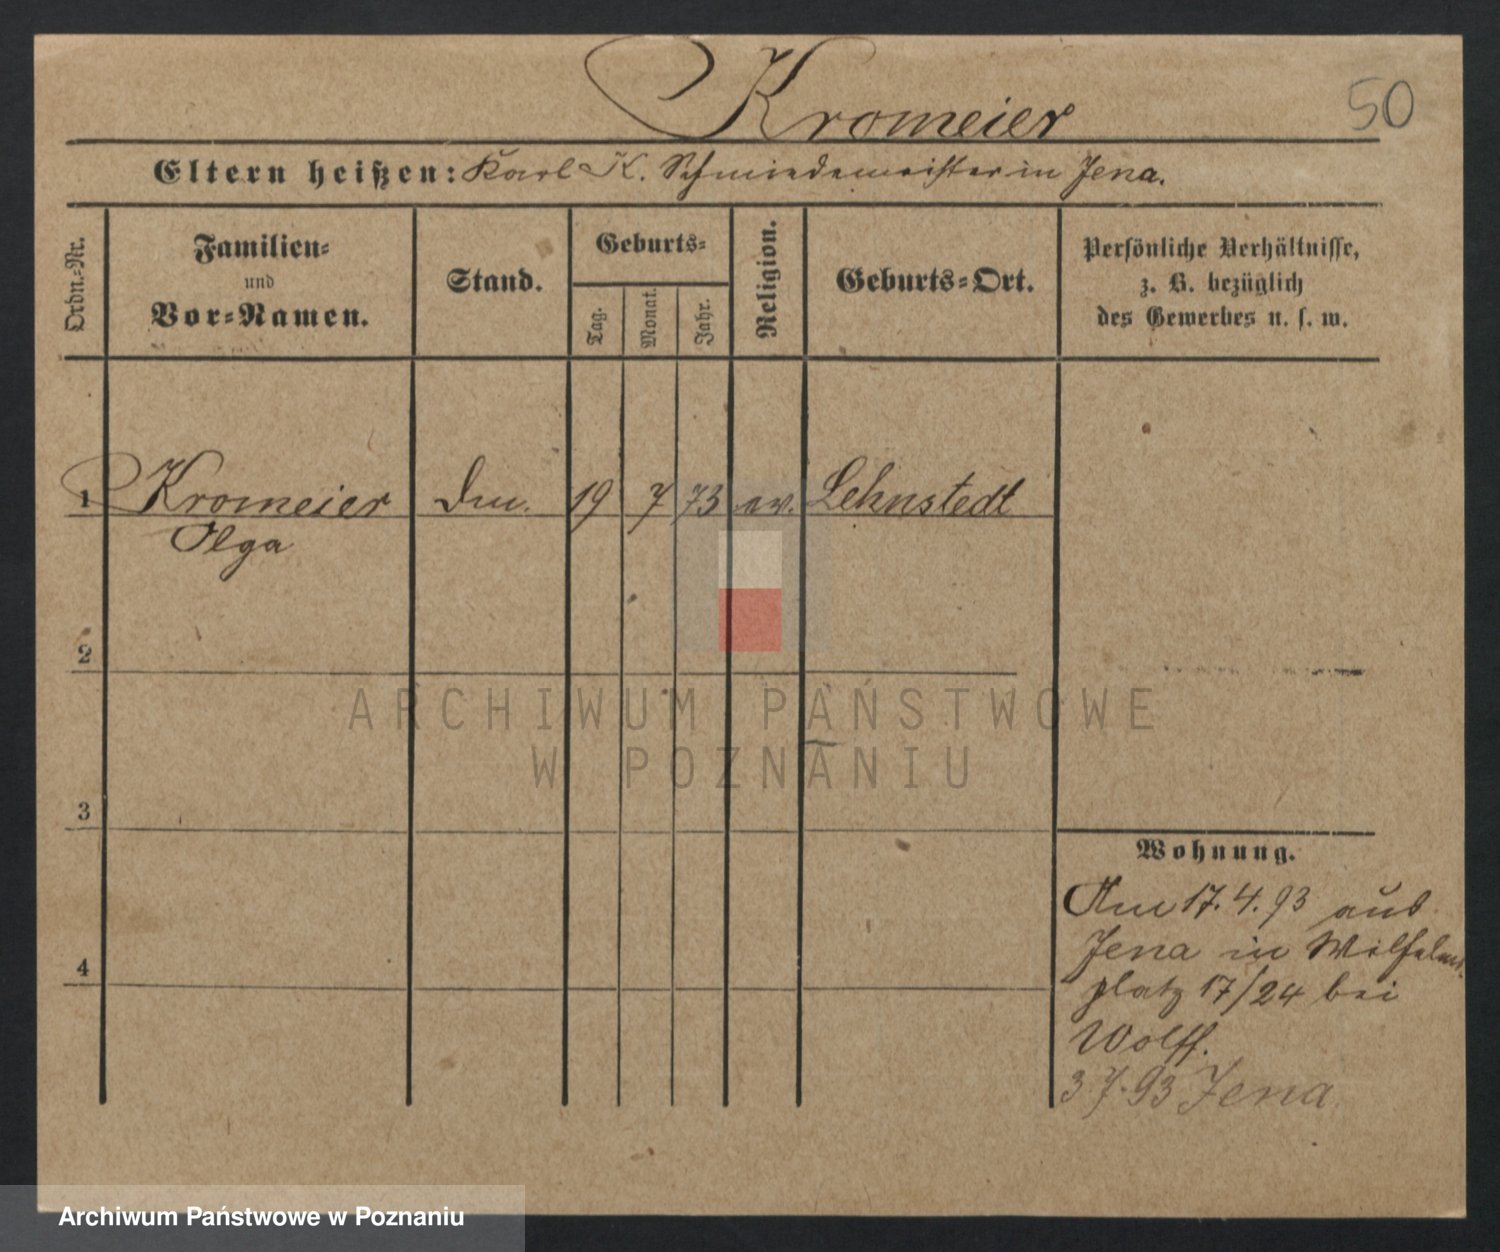 Kromeier
50
Eltern heißen: Karl K. Schmiedemeister in Jena.
Ordn.-Nr.
Familien-
und
Vor-Namen.
Stand.
Geburts-
Tag.
Monat.
Jahr.
Religion.
Geburts-Ort.
Persönliche Verhältnisse,
z. B. bezüglich
des Gewerbes u. s. w.
1 Kromeier 19 7 73 ev. Lehnstedt
Olga
2
ARCHIWUM PAŃSTWOWE
W POZNANIU
3
Wohnung.
Am 17. 4. 93 aus
Jena in Wilhelms-
4
platz 17/24 bei
Wolff.
3 7. 93 Jena
Archiwum Państwowe w Poznaniu